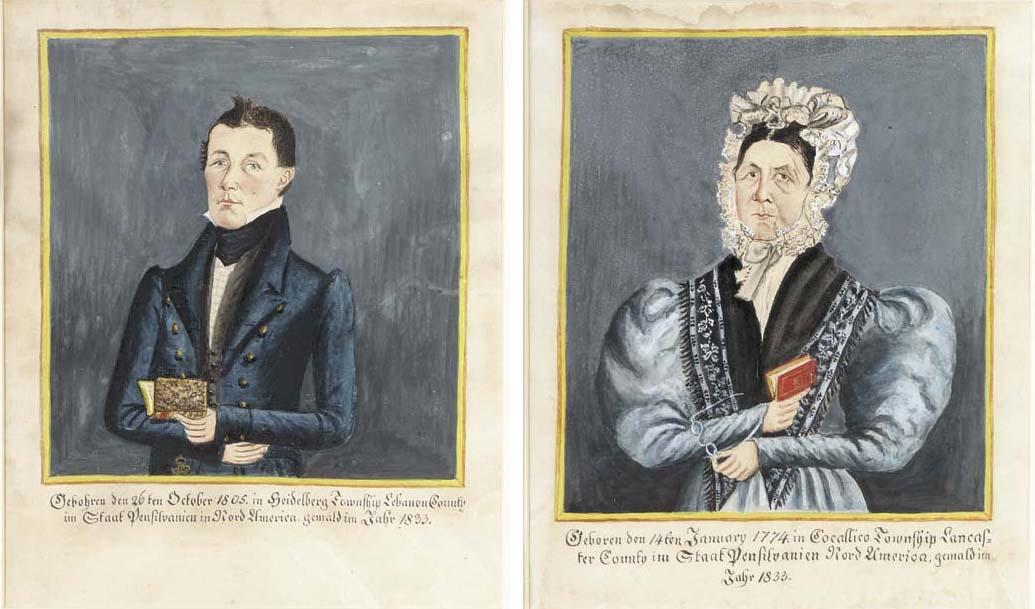 Gebohren den 26 ten October 1805. in Heidelberg Township Lebanon County
im Staat Pensilvanien in Nord America. gemald im Jahr 1833.
Geboren den 14ten January 1774. in Cocallico Township Lancas=
ter County im Staat Pensilvanien Nord America, gemald im
Jahr 1833.